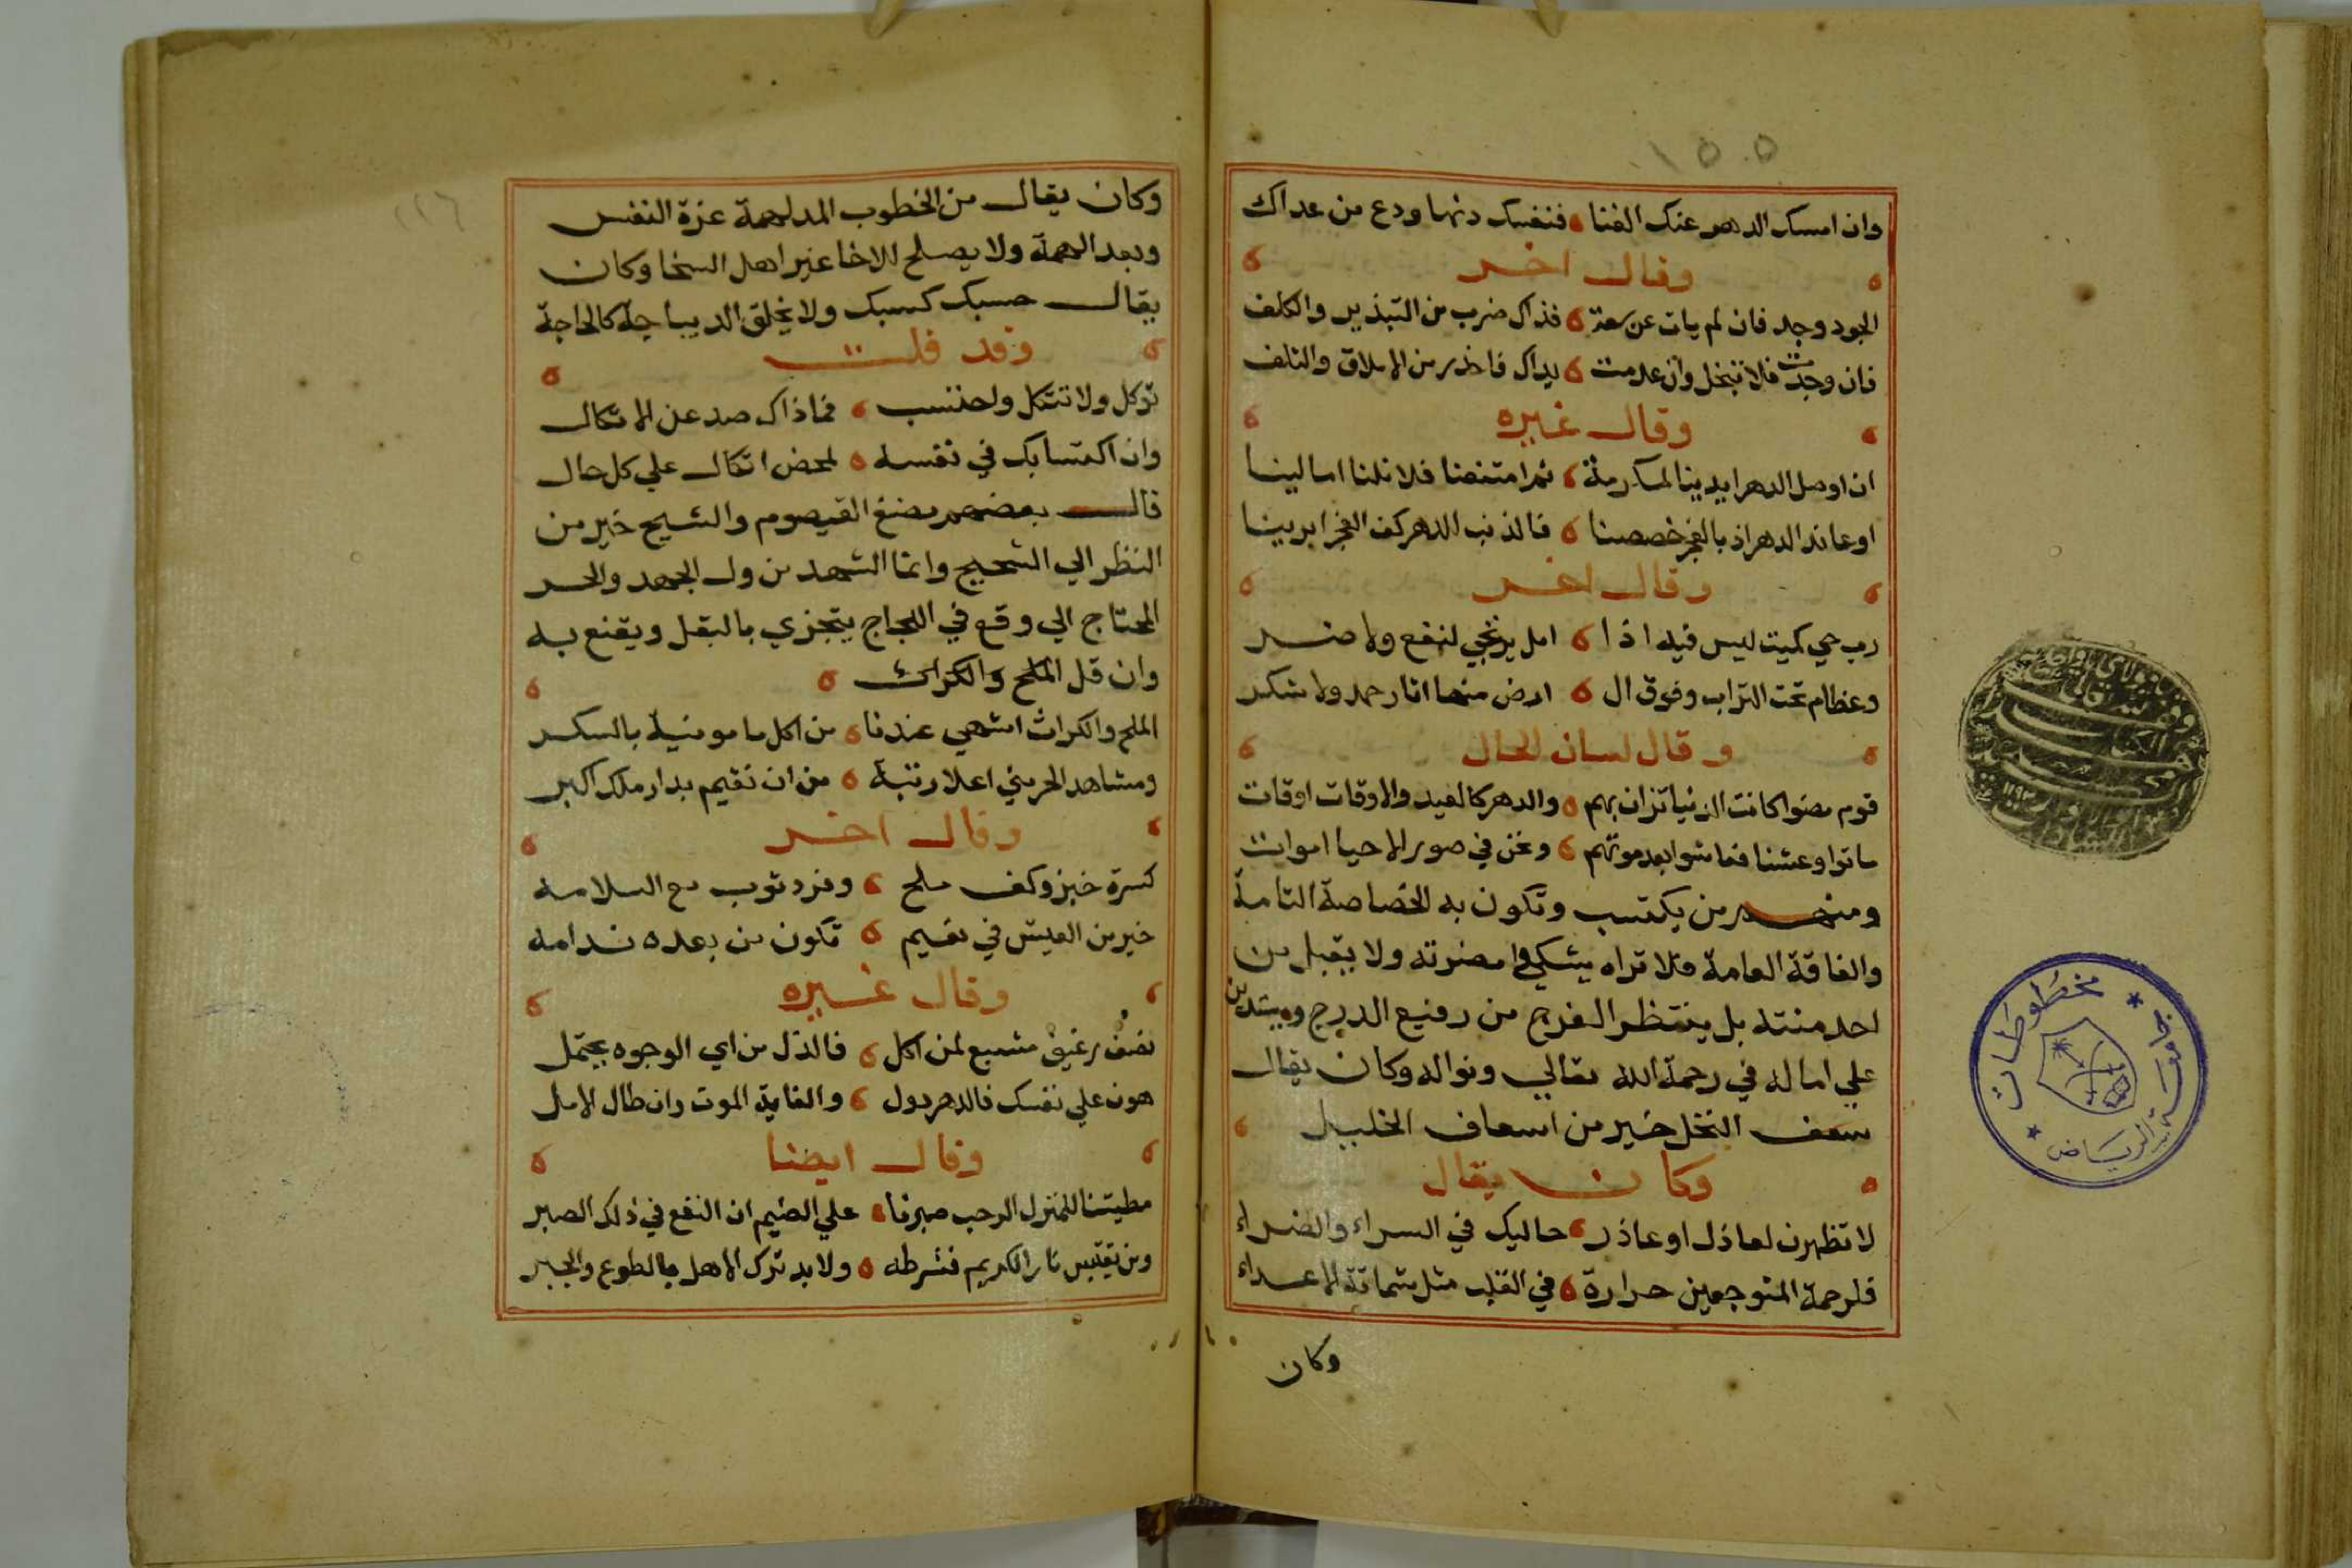 ١٥٥
وان امسك الدهر عنك الغنا فنفسك دنها ودع من عداك
وقال اخر
الجود وجد فان لم يات عن سعة فذاك ضرب من التبذير والكلف
فان وجدت فلا تبخل وان عدمت يداك فاحذر من الاملاق والتلف
وقال غيره
ان اوصل الدهر ايدينا لمكرمة ثم امتنعنا فلا نلنا امالينا
او عاند الدهر اذ بالعجز خصصنا فالذنب للدهر كف العجز ايدينا
وقال اخر
رب حي كميت ليس فيه اذا امل يرتجي لنفع ولا ضر
وعظام تحت التراب وفوق ال ارض منها اثار حمد ولا شكر
وقال لسان الحال
قوم مضوا كانت الدنيا تزان بهم والدهر كالعيد والاوقات اوقات
ماتوا وعشنا فعاشوا بعد موتهم ونحن في صور الاحيا اموات
ومنهم من يكتسب وتكون به الخصاصة التامة
والفاقة العامة فلا تراه يشكوا مضرته ولا يقبل من
احد منته بل ينتظر الفرج من رفيع الدرج
علي اماله في رحمة الله تعالي ونواله وكان يقال
سعف النخل خير من اسعاف الخليل
وكان يقال
لا تظهرن لعاذل او عاذر حاليك في السراء والضراء
فلرحمة المتوجعين حرارة في القلب مثل شماتة الاعداء
وكان
مخطوطات
جامعة الرياض
١١٦
وكان يقال من الخطوب المدلهمة عزة النفس
وبعد الهمة ولا يصلح للاخا غير اهل السخا وكان
يقال حسبك كسبك ولا يخلق الديباجة كالحاجة
وقد قلت
توكل ولا تتكل واحتسب فماذاك صد عن الاتكال
وان اكتسابك في نفسه لمحض اتكال علي كل حال
قال بعضهم مضغ القيصوم والشيح خير من
النظر الي الشحيح وانما الشهد من ول الجهد والحر
المحتاج الي وقع في اللجاج يتجزي بالبقل ويقنع به
وان قل الملح والكراث
الملح والكراث اشهي عندنا من اكل مامونية بالسكر
ومشاهد الحرمني اعلا رتبة من ان نقيم بدار ملك اكبر
وقال اخر
كسرة خبز وكف ملح وفرد ثوب مع السلامه
خير من العيش في نعيم تكون من بعده ندامه
وقال غيره
نصف رغيف مشبع لمن اكل فالذل من اي الوجوه يحتمل
هون علي نفسك فالدهر دول والغاية الموت وان طال الامل
وقال ايضا
مطيتنا للمنزل الرحب صبرنا علي الضيم ان النفع في ذلك الصبر
ومن يقتبس نار الكريم فشرطه ولا بد ترك الاهل بالطوع والجبر